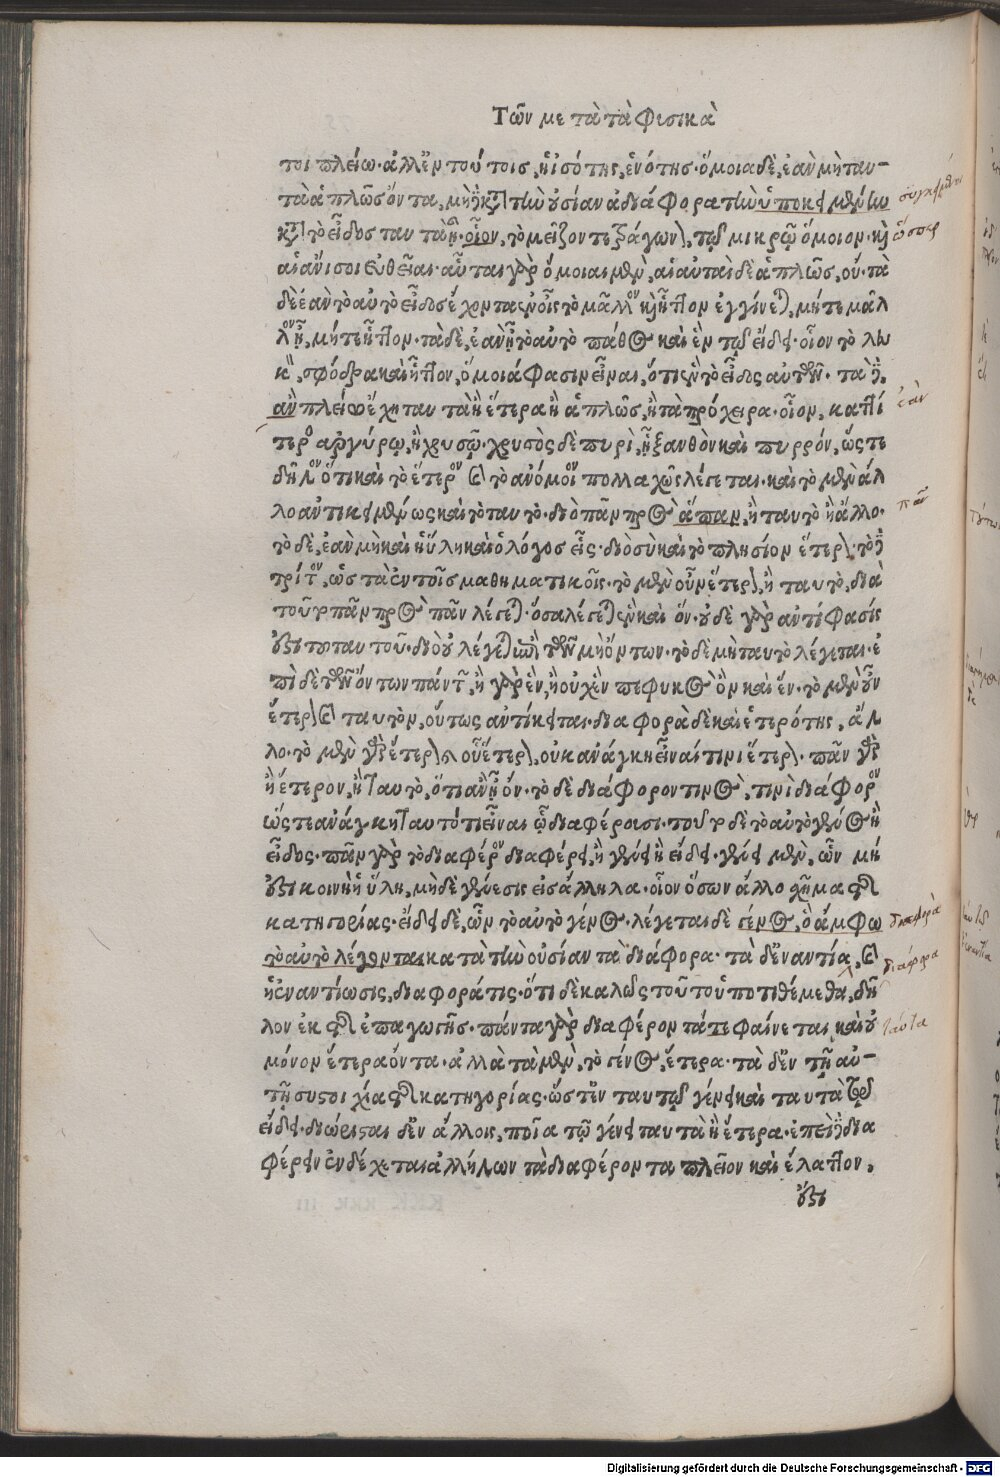 Τῶν μετὰ τὰ φυσικὰ
τοι πλείω. ἀλλ' ἐν τούτοις, ἡ ἰσότης, ἑνότης. ὅμοια δὲ, ἐὰν μὴ ταυ-
τὰ ἁπλῶς ὄντα, μὴ δὲ κατὰ τὴν οὐσίαν ἀδιάφορα τὴν ὑποκειμένην
κατὰ τὸ εἶδος ταυτὰ ᾖ. οἷον, τὸ μεῖζον τετράγωνον, τῷ μικρῷ ὅμοιον. καὶ
αἱ ἄνισοι εὐθεῖαι. αὗται γὰρ ὅμοιαι μὲν, αἱ αὐταὶ δὲ ἁπλῶς, οὔ. τὰ
δὲ ἐὰν τὸ αὐτὸ εἶδος ἔχοντα ἐν οἷς τὸ μᾶλλον καὶ ἧττον ἐγγίνεται, μήτε μᾶλ
λον ᾖ, μήτε ἧττον. τὰ δὲ, ἐὰν ᾖ τὸ αὐτὸ πάθος καὶ ἓν τῷ εἴδει. οἷον τὸ λευ
κὸν, σφόδρα καὶ ἧττον, ὅμοιά φασιν εἶναι, ὅτι ἓν τὸ εἶδος αὐτῶν. τὰ δὲ,
ἂν πλείω ἔχῃ ταυτὰ ἢ ἕτερα ἢ ἁπλῶς, ἢ τὰ πρόχειρα. οἷον, καττί
τερος ἀργύρῳ, ἢ χρυσῷ. χρυσὸς δὲ πυρὶ, ᾗ ξανθὸν καὶ πυρρόν, ὥστε
δῆλον ὅτι καὶ τὸ ἕτερον καὶ τὸ ἀνόμοιον πολλαχῶς λέγεται. καὶ τὸ μὲν ἄλ
λο ἀντικειμένως καὶ τὸ ταυτό. διὸ πᾶν πρὸς ἅπαν, ἢ ταυτὸ ἢ ἄλλο.
τὸ δὲ, ἐὰν μὴ καὶ ἡ ὕλη καὶ ὁ λόγος εἷς. διὸ σὺ καὶ τὸ πλησίον ἕτερον. τὸ δὲ
τρίτον, ὡς τὰ ἐν τοῖς μαθηματικοῖς. τὸ μὲν οὖν ἕτερον, ἢ ταυτὸ, διὰ
τοῦτο πᾶν πρὸς πᾶν λέγεται. ὅσα λέγεται ἓν καὶ ὄν. οὐδὲ γὰρ ἀντίφασίς
ἐστι τοῦ ταυτοῦ. διὸ οὐ λέγεται ἐπὶ τῶν μὴ ὄντων. τὸ δὲ μὴ ταυτὸ λέγεται. ἐ
πὶ δὲ τῶν ὄντων πάντων, ἢ γὰρ ἓν, ἢ οὐχ ἓν πέφυκεν ὂν καὶ ἕν. τὸ μὲν οὖν
ἕτερον καὶ ταυτὸν, οὕτως ἀντίκειται. διαφορὰ δὲ καὶ ἑτερότης, ἄλ
λο. τὸ μὲν γὰρ ἕτερον καὶ οὗ ἕτερον, οὐκ ἀνάγκη εἶναί τινι ἕτερον. πᾶν γὰρ
ἢ ἕτερον, ἢ ταυτὸ, ὅτι ἂν ᾖ ὄν. τὸ δὲ διάφορον τινὸς, τινὶ διάφορον
ὥστε ἀνάγκη ταυτό τι εἶναι ᾧ διαφέρουσι. τοῦτο δὲ τὸ αὐτὸ γένος ἢ
εἶδος. πᾶν γὰρ τὸ διαφέρον διαφέρει, ἢ γένει ἢ εἴδει. γένει μὲν, ὧν μή
ἐστι κοινὴ ἡ ὕλη, μὴ δὲ γένεσις εἰς ἄλληλα. οἷον ὅσων ἄλλο σχῆμα τῆς
κατηγορίας. εἴδει δὲ, ὧν τὸ αὐτὸ γένος. λέγεται δὲ γένος, ὃ ἄμφω
τὸ αὐτὸ λέγονται κατὰ τὴν οὐσίαν τὰ διάφορα. τὰ δ' ἐναντία, καὶ
ἡ ἐναντίωσις, διαφορά τις. ὅτι δὲ καλῶς τοῦτο ὑποτιθέμεθα, δῆ
λον ἐκ τῆς ἐπαγωγῆς. πάντα γὰρ διαφέροντά τε φαίνεται, καὶ οὐ
μόνον ἕτερα ὄντα. ἀλλὰ τὰ μὲν, τὸ γένος, ἕτερα. τὰ δ' ἐν τῇ αὐ-
τῇ συστοιχίᾳ τῆς κατηγορίας. ὥστ' ἐν ταυτῷ γένει καὶ ταυτὰ τῷ
εἴδει. διώρισται δ' ἐν ἄλλοις, ποῖα τῷ γένει ταυτὰ ἢ ἕτερα. ἐπεὶ δὲ δια
φέρειν ἐνδέχεται ἀλλήλων τὰ διαφέροντα πλεῖον καὶ ἔλαττον,
ἔστι
ὥσπερ
ἐὰν
πᾶν
διαφορὰ
διάφορα
ταῦτα
Digitalisierung gefördert durch die Deutsche Forschungsgemeinschaft - DFG